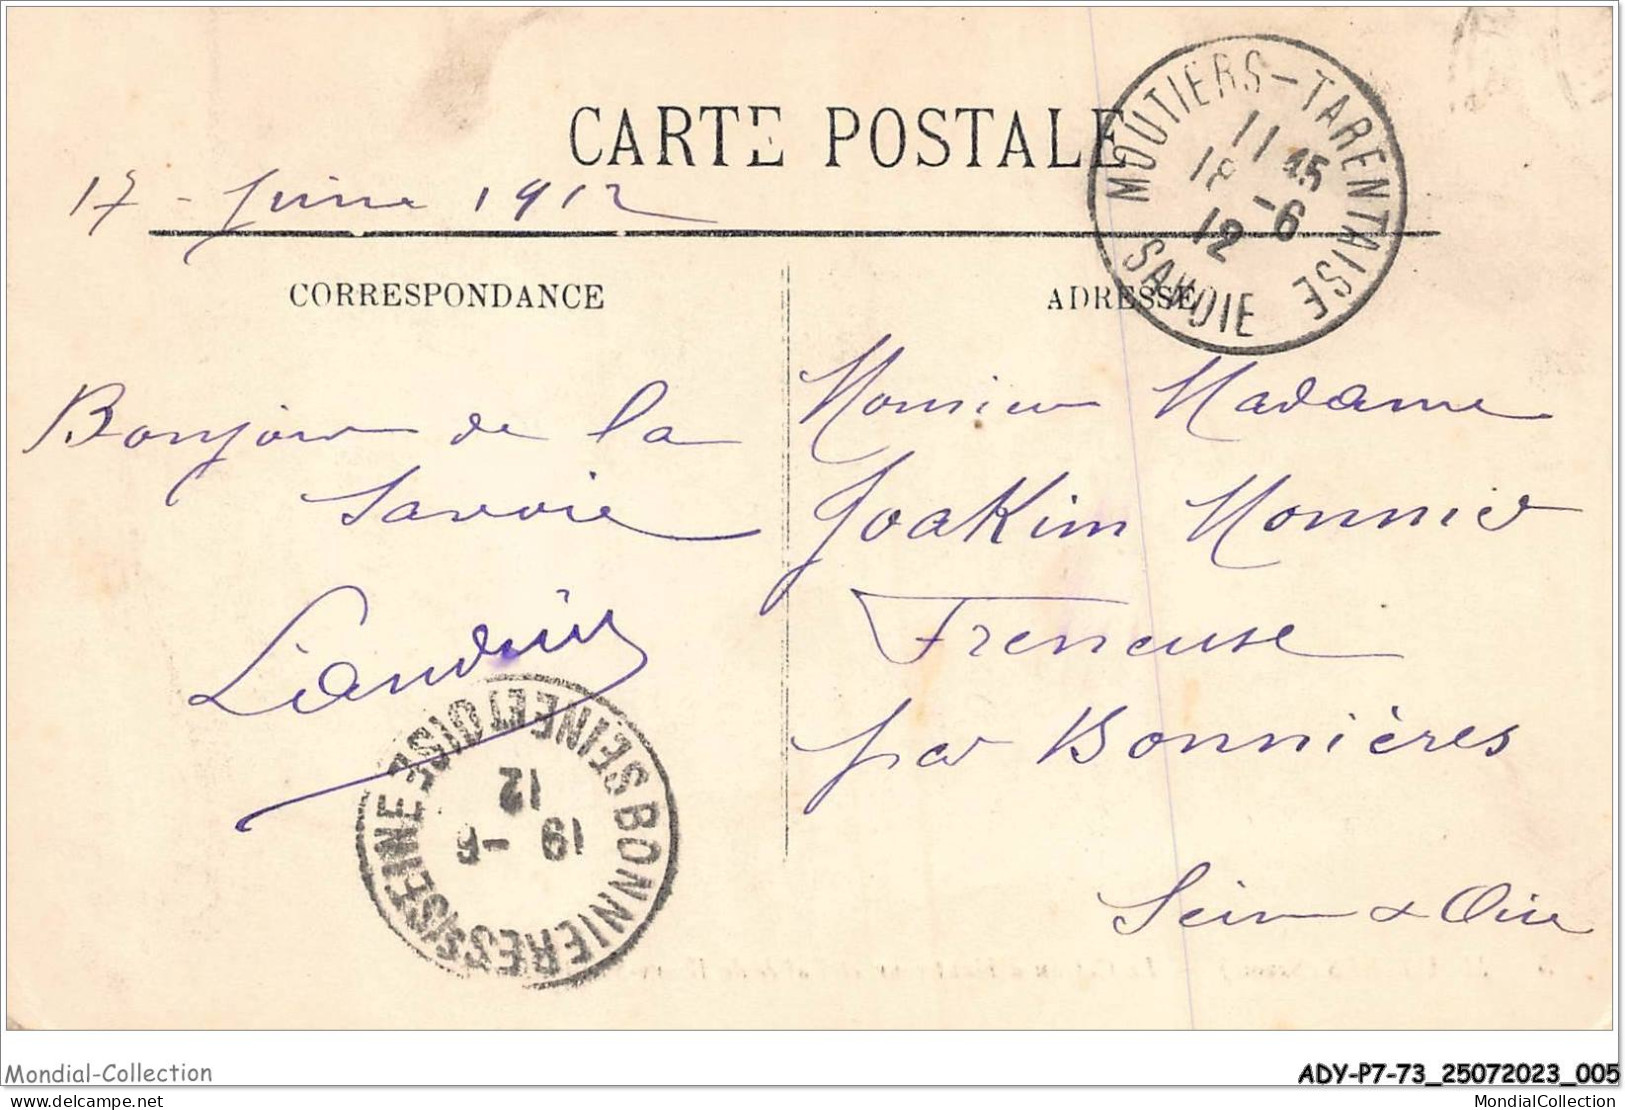 CARTE POSTALE
17 - Juin 1912
CORRESPONDANCE
ADRESSE
MOUTIERS-TARENTAISE
11 45
18 -6
12
SAVOIE
Bonjour de la
Savoie
Monsieur Madame
Joakim Monnier
Freneuse
par Bonnières
Seine & Oise
BONNIERES S/SEINE SEINE ET OISE
19 -6
12
Mondial-Collection
ADY-P7-73_25072023_005
delcampe.net
MondialCollection